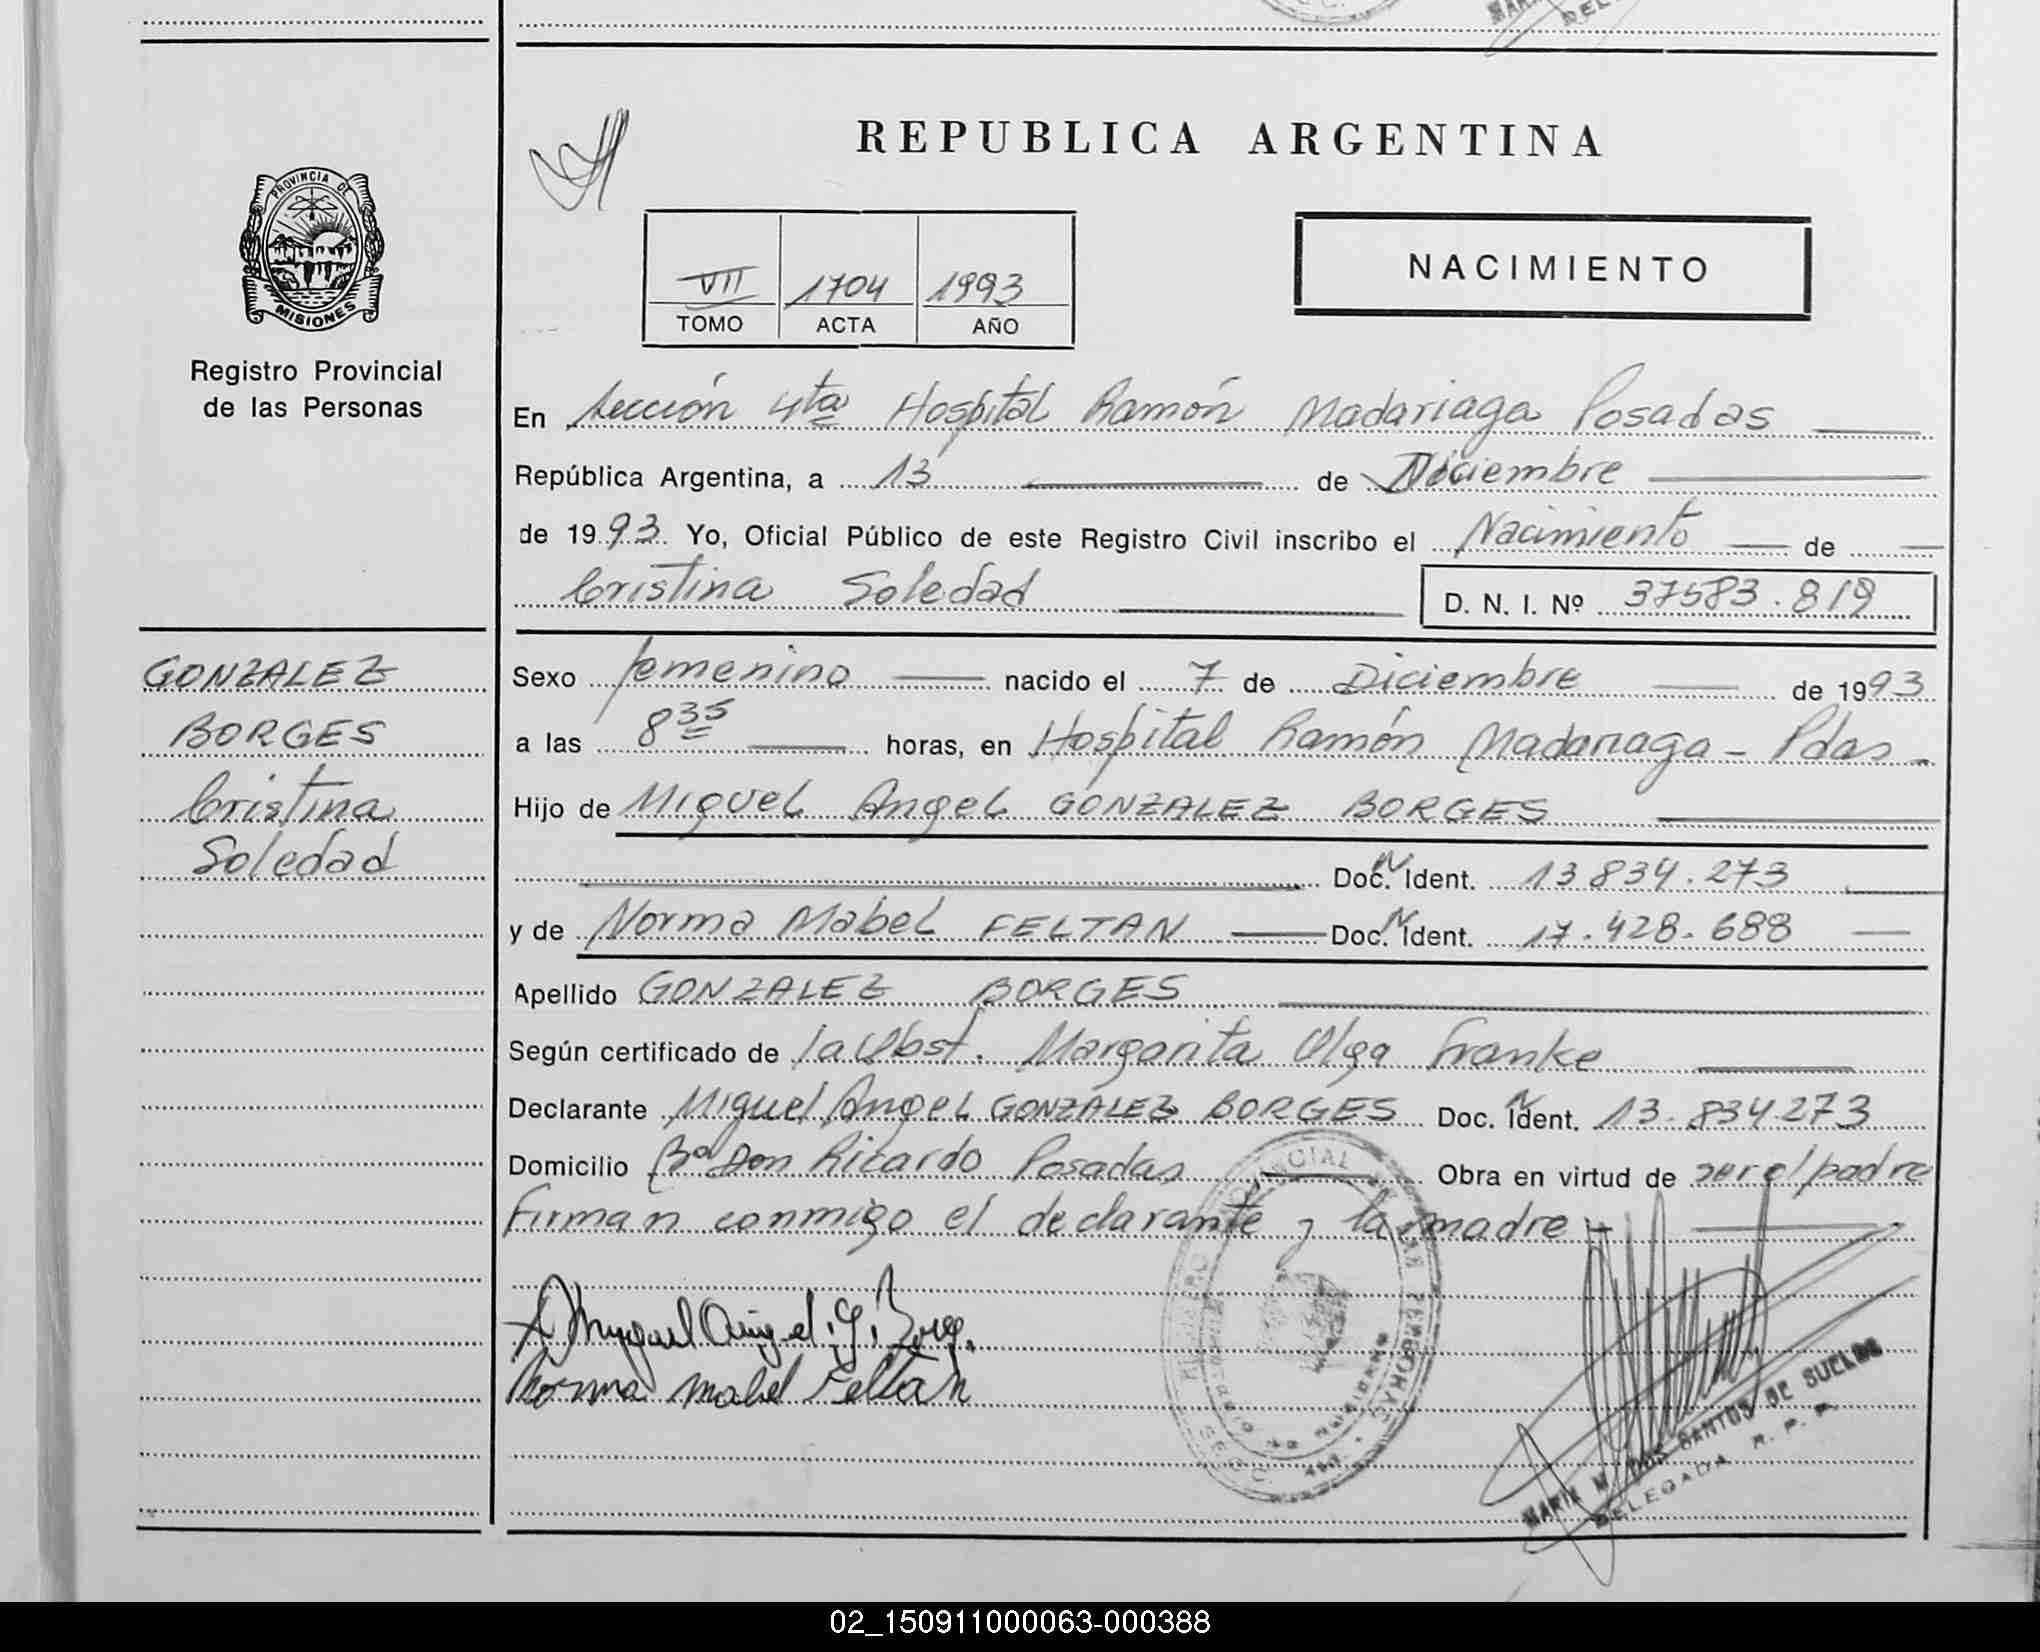 REPUBLICA ARGENTINA
PROVINCIA DE
MISIONES
Registro Provincial
de las Personas
VII 1704 1993
TOMO ACTA AÑO
NACIMIENTO
En Sección 4ta Hospital Ramón Madariaga Posadas
República Argentina, a 13 de Diciembre
de 1993 Yo, Oficial Público de este Registro Civil inscribo el Nacimiento de
Cristina Soledad D. N. I. Nº 37583.819
GONZALEZ
BORGES
Cristina
Soledad
Sexo femenino nacido el 7 de Diciembre de 1993
a las 8 35 horas, en Hospital Ramón Madariaga - Pdas -
Hijo de Miguel Angel GONZALEZ BORGES
Doc. Ident. 13 834.273
y de Norma Mabel FELTAN Doc. Ident. 17.428.688
Apellido GONZALEZ BORGES
Según certificado de la Obst. Margarita Olga Franke
Declarante Miguel Angel GONZALEZ BORGES Doc. Ident. 13.834.273
Domicilio Bº Don Ricardo Posadas Obra en virtud de ser el padre
Firman conmigo el declarante y la madre
Miguel Angel. G. Borg.
Norma Mabel Feltan
MARIA M. DOS SANTOS DE SUELDO
DELEGADA R. P. P.
02_150911000063-000388